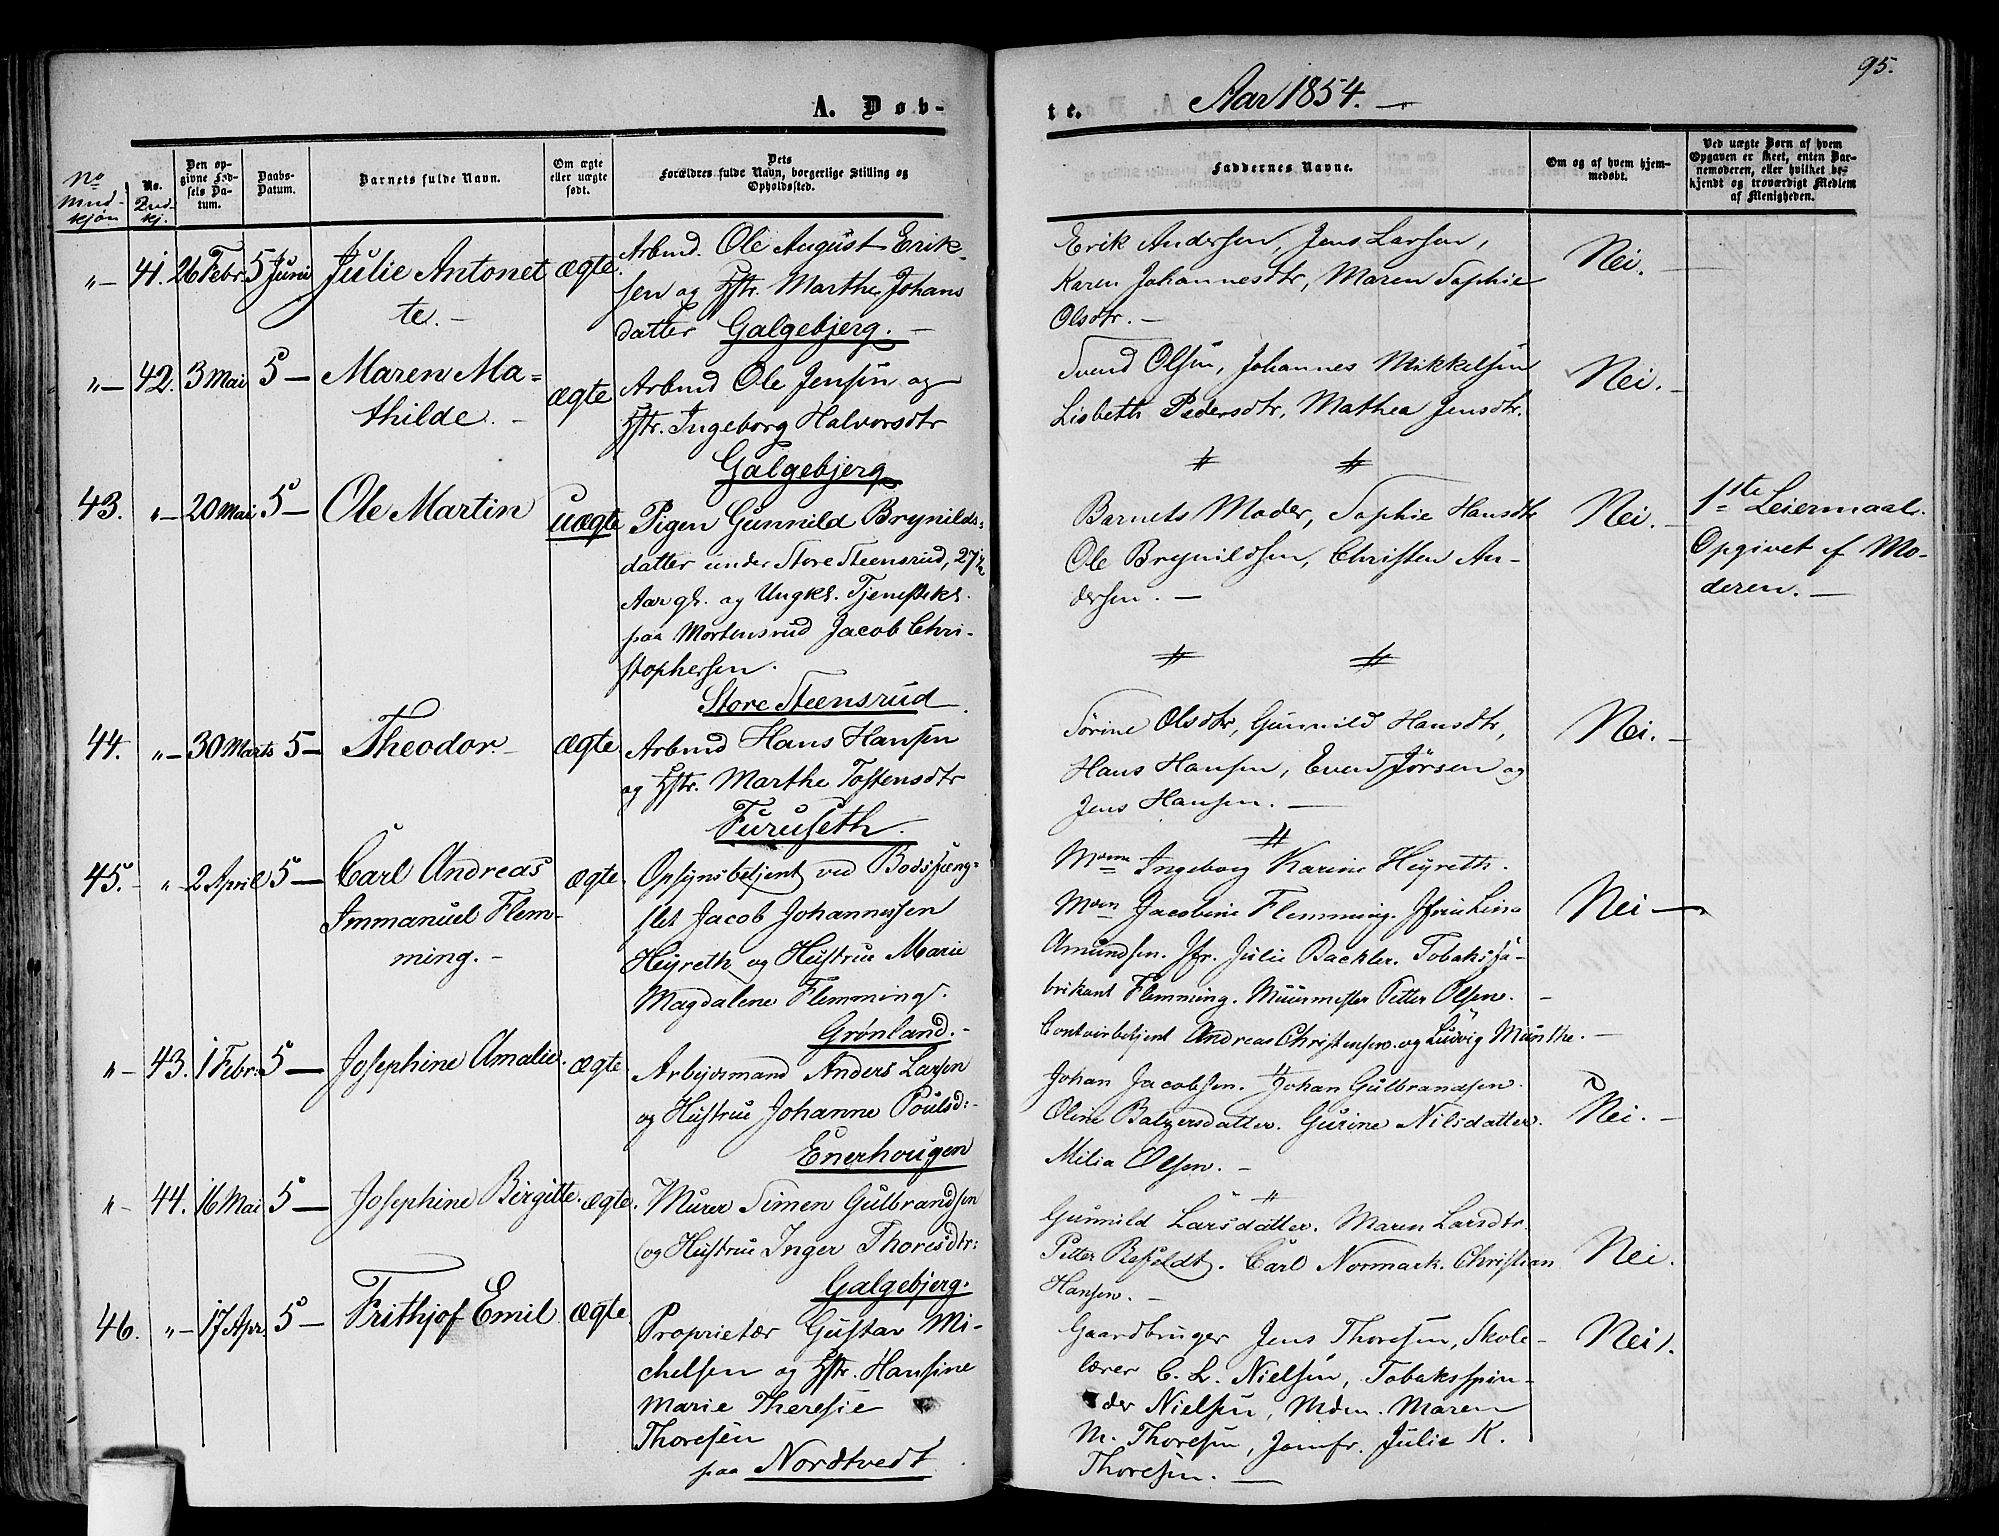 A. Døb-
No Mndkjøn
No. Qvdkj.
Den opgivne Fødsels Datum.
Daabs-Datum.
Barnets fulde Navn.
Om ægte eller uægte født.
Dets
Forældres fulde Navn, borgerlige Stilling og
Opholdssted.
„— 41. 26 Febr. 5 Juni Julie Antonet ægte. Arbmd. Ole August Erik-
te.— sen og Hstr. Marthe Johans
datter Galgebjerg.—
„— 42. 3 Mai 5— Maren Ma= ægte Arbmd Ole Jensen og
thilde.— Hstr. Ingeborg Halvorsdtr
Galgebjerg
43. „— 20 Mai 5— Ole Martin uægte Pigen Gunnild Brynilds=
datter under Store Steensrud, 27½
Aar gl. og Ungkl. Tjenestekl.
paa Mortensrud Jacob Chri-
stophersen.
Store Steensrud.
44. „— 30 Marts 5— Theodor.— ægte Arbmd Hans Hansen
og Hstr. Marthe Tostensdtr
Furuseth.
45.— „ 2 April 5— Carl Andreas ægte. Opsynsbetjent ved Bodsfæng=
Immanuel Flem- slet Jacob Johannessen
ming.— Heyreth og Hustrue Marie
Magdalene Flemming.
Grønland.—
„— 43. 1 Febr. 5— Josephine Amalie. ægte Arbejdsmand Anders Larsen
og Hustrue Johanne Poulsd:
Enerhougen
„— 44. 16 Mai 5— Josephine Birgitte. ægte. Murer Simen Gulbrandsen
og Hustrue Inger Thoresdtr:
Galgebjerg.
46. „— 17 Apr. 5— Frithjof Emil ægte Proprietær Gustav Mi-
chelsen og Hstr. Hansine
Marie Theresie
Thoresen
paa Nordtvedt
95.
te. Aar 1854.—
Faddernes Navne.
Om og af hvem hjemmedøbt.
Ved uægte Børn af hvem
Opgaven er skeet, enten Bar-
nemoderen, eller hvilket be-
kjendt og troværdigt Medlem
af Menigheden.
Erik Andersen, Jens Larsen, Nei.—
Karen Johannesdtr, Maren Sophie
Olsdtr.—
Svend Olsen, Johannes Mikkelsen Nei.—
Lisbeth Pedersdtr, Mathea Jensdtr.
Barnets Moder, Sophie Hansdtr Nei.— 1ste Leiermaal.
Ole Brynildsen, Christen An- Opgivet af Mo-
dersen.— deren.—
Sørine Olsdtr, Gunnild Hansdtr, Nei.—
Hans Hansen, Even Jørsen og
Jens Hansen.—
Ingeborg Karine Heyreth.
Jacobine Flemming. Nei—
Amundsen. Jfr. Julie Backler. Tobaksfa-
brikant Flemming. Muurmester Petter Olsen.—
Contoirbetjent Andreas Christensen. og Ludvig Munthe.—
Johan Jacobsen. Johan Gulbrandsen.
Oline Balzersdatter. Gurine Nilsdatter. Nei.—
Milia Olsen.—
Gunnild Larsdatter. Maren Larsdtr.
Petter Carl Normark. Christian Nei.
Hansen.—
Gaardbruger Jens Thoresen, Skole- Nei.
lærer C. L. Nielsen, Tobaksspin-
der Nielsen, Mdm. Maren
M. Thoresen, Jomfr. Julie K.
Thoresen.—